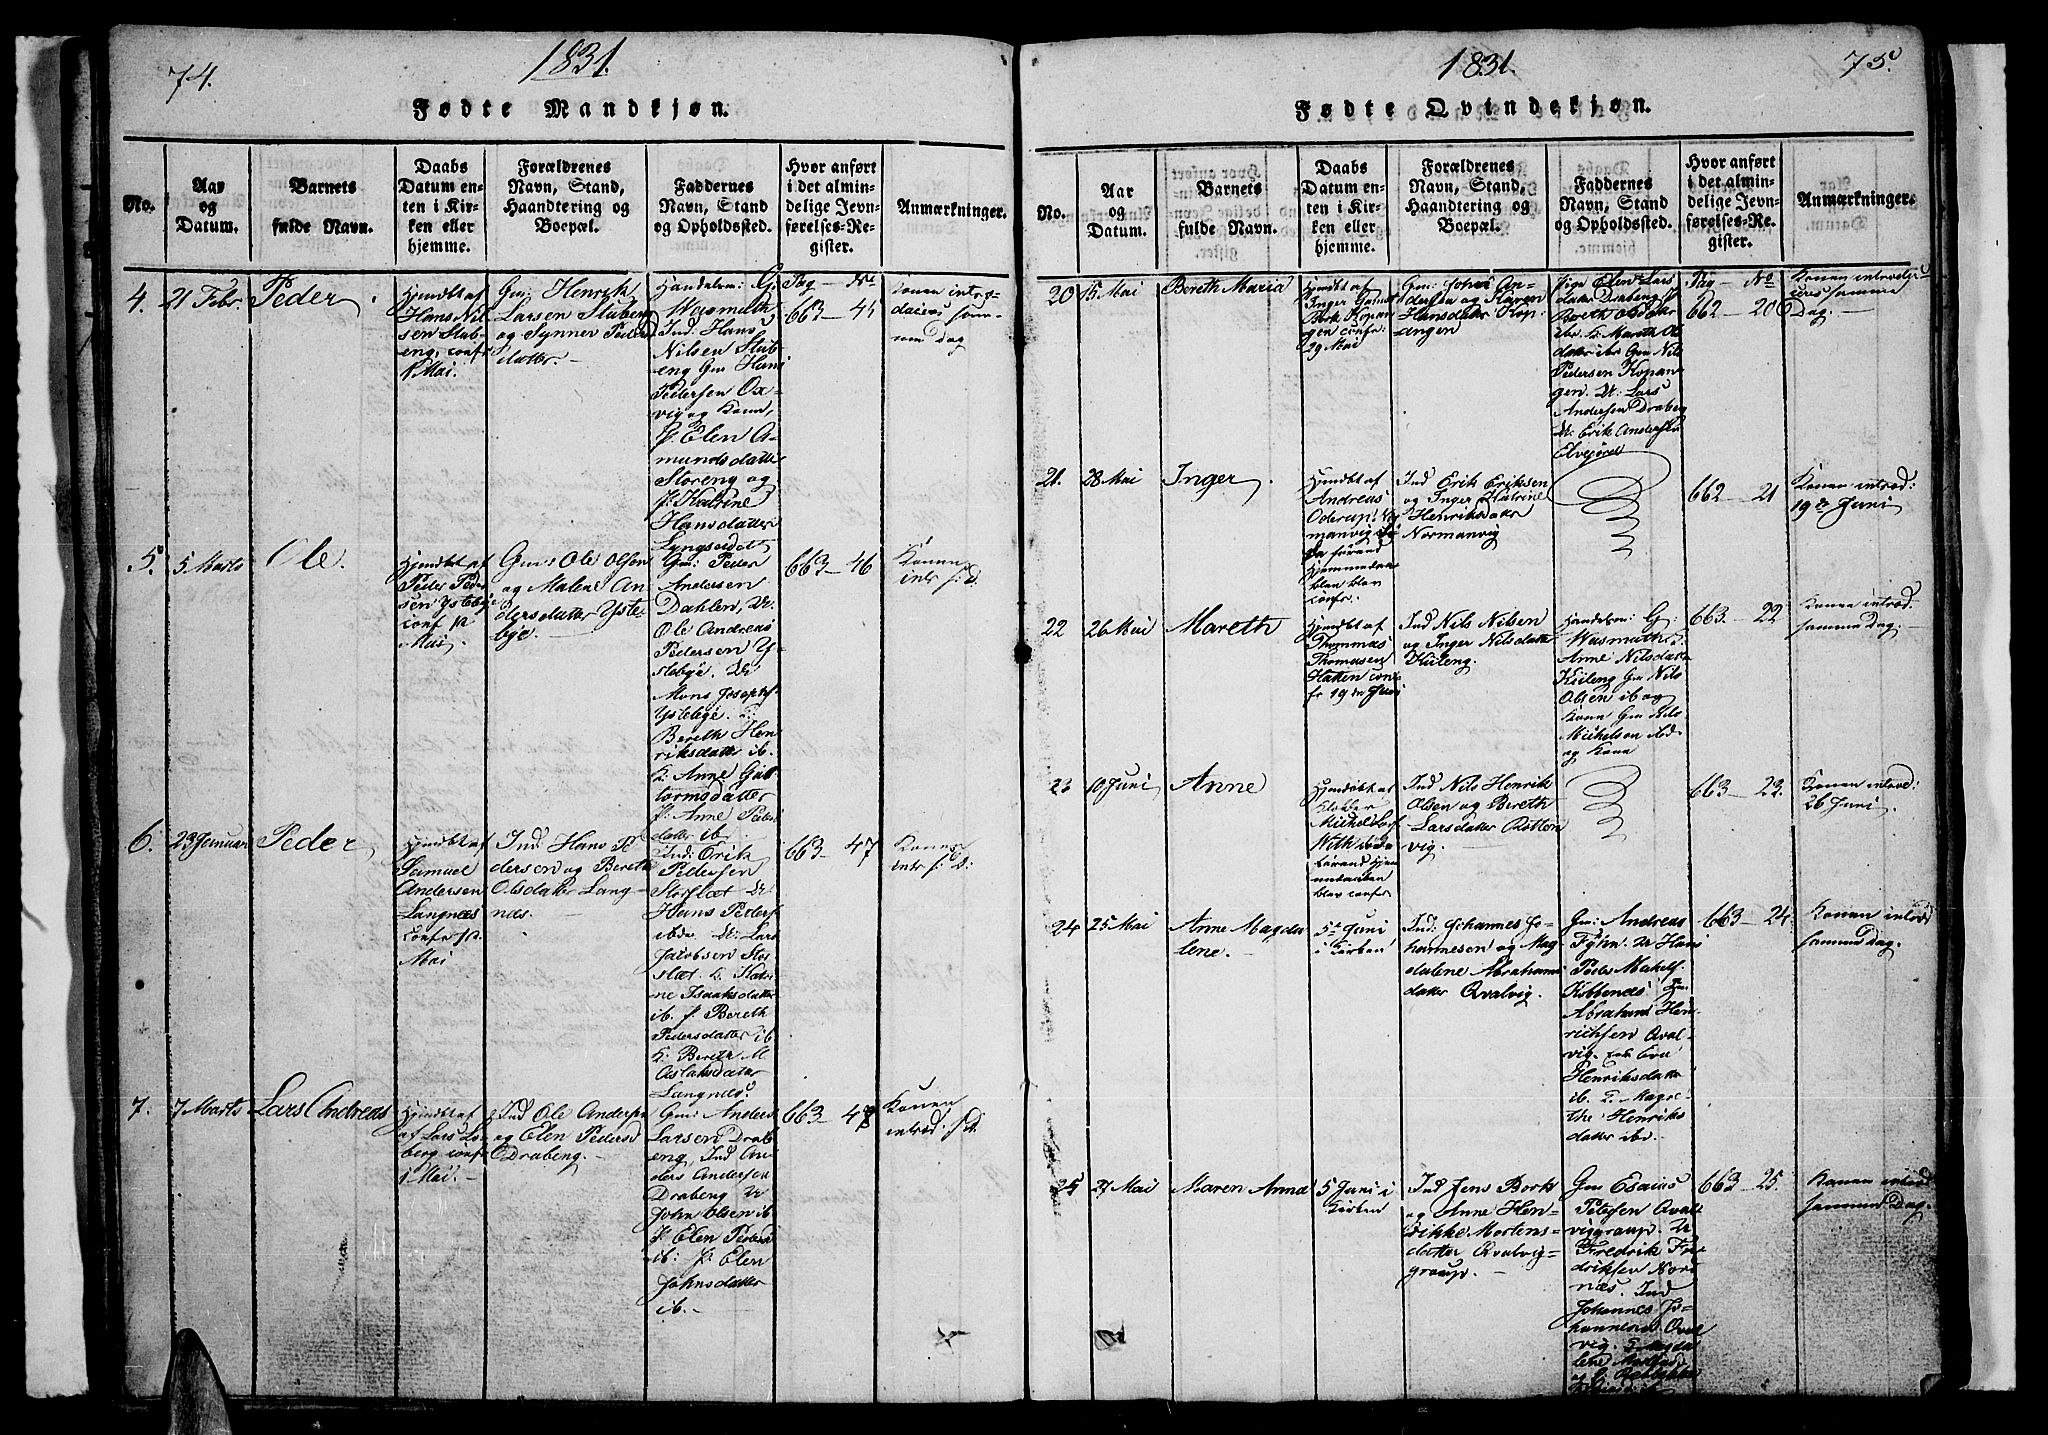 74.
1831.
Fødte Mandkjøn.
No.
Aar
og
Datum.
Barnets
fulde Navn.
Daabs
Datum en-
ten i Kir-
ken eller
hjemme.
Forældrenes
Navn, Stand,
Haandtering og
Boepæl.
Faddernes
Navn, Stand
og Opholdssted.
Hvor anført
i det almin-
delige Jevn-
førelses-Re-
gister.
Anmærkninger.
4.
21 Febr.
Peder
Hjemdbt af
Hans Nil-
sen Stub-
eng, conf
1 Mai.
Gm: Henrik
Larsen Stubeng
og Synner Peders
datter.
Handelsm: G.
Wasmuth
Ind: Hans
Nilsen Stub-
eng Gm Hans
Pedersen Ox-
vig og Kone,
P. Elen A-
mundsdatter
Storeng og
P: Katrine
Hansdatter
Lyngseidet
Pag — No
663 — 45
Konen intro-
sam-
me Dag
5.
5 Marts
Ole.
Hjemdbt af
Peder Peder
sen Ystebye
conf 12
Mai.
Gm: Ole Olsen
og Malene An-
dersdatter Yste-
bye.
Gm: Peder
Andersen
Dahlen, U:
Ole Andreas
Pedersen Y-
stebye. U:
Mons Josephs
Ystebye.
Bereth Hen-
riksdatter ib.
K: Anne Gut-
tormsdatter
P: Anne Peders
datter ib
663 — 46
Konen
intr s: D.
6.
23 Januar
Peder
Hjemdbt af
Samuel
Andersen
Langnæs
conf 12
Mai
Ind: Hans Pe-
dersen og Bereth
Olsdatter Lang-
næs.
Ind: Erik
Pedersen
Storslæt U:
Hans Peders
ibdm U: Lars
Jacobsen Stor
slæt K: Kater-
ine Isaksdatter
ib. P: Bereth
Pedersdatter ib
K: Bereth M.
Aslaksdatter
Langnæs.
663 — 47
Konen
intr s: D:
7.
7 Marts
Lars Andreas
Hjemdbt af
af Lars Lo-
berg conf
1 Mai.
Ind Ole Andersen
og Elen Peders d
Drabeng.
Gm: Anders
Larsen Drab
eng, Ind An-
ders Andersen
Drabeng U:
John Olsen ib
P Elen Peders d
ib: P: Elen
Johnsdatter
ib.
663 — 48
Konen
introd. s: D.
1831.
75.
Fødte Qvindekjøn.
No.
Aar
og
Datum.
Barnets
fulde Navn.
Daabs
Datum en-
ten i Kir-
ken eller
hjemme.
Forældrenes
Navn, Stand,
Haandtering og
Boepæl.
Faddernes
Navn, Stand
og Opholdssted.
Hvor anført
i det almin-
delige Jevn-
førelses-Re-
gister.
Anmærkninger.
20
15 Mai
Bereth Maria
Hjemdbt af
Inger
Bork Kopan
gen conf:
29 Mai
Gm: John An-
dersen og Karen
Hansdatter Kop-
angen
Pige Elen Lars
datter Drabeng P
Bereth Olsdatter
ibr. K: Mareth Ols
datter ibr Gm Nils
Pedersen Kopan-
gen. U: Lars
Andersen Drabeng
U: Erik Andersen
Elvejord
Pag — No
662 — 20
Konen
samme
Dag.
21.
28 Mai
Inger
Hjemdbt af
Andreas
Oderup: No
manvig
Da førend
Hjemmedaaben
blev
confr.
Ind Erik Eriksen
og Inger Katrine
Henriksdatter
Normanvig
662 — 21
Konen introd:
19de Juni
22
26 Mai
Mareth
Hjemdbt af
Thommas
Thomasen
Hatten con-
fr 19de Juni
Ind Nils Nilsen
og Inger Nilsdatter
Kileng.
Handelsm: G:
Wasmuth P:
Anne Nilsdatter
Kileng Gm Nils
Olsen ib og
Kone Gm Nils
Mikelsen ibd
og Kone
663. — 22
Konen introd-
samme Dag.
23
10 Juni
Anne
Hjemdøbt af
Klokker
Michel
With
førend Hjem
medaaben
blev confr.
Ind Nils Henrik
Olsen og Bereth
Larsdatter Rotten
vig.
663 — 23.
Konen introd:
26 Juni.
24
25 Mai
Anne Magda
lene.
5te Juni
i Kirken
Ind: Johannes Jo-
hannesen og Mag
dalene Abrahams
datter Qvalvig.
Gm: Andreas
Fyhn. U: Hans
Peder Mikels
Kobbenæs Gm:
Abraham Hen
richsen Qval-
vig. Eva
Henriksdatter
ib. P. Magre-
the Henriks
datter ibr.
663 — 24.
Konen introd
samme Dag.
25
27 Mai
Maren Anna
5 Juni i
Kirken
Ind Jens Bork
og Anne Hen-
rikke Mortens-
datter Qvalvig-
group.
Gm Esaias
Petersen Qval-
viggroup. U
Fredrik Fre
driksen Nord
næs. Ind
Johannes Jo-
hannesen Qval
vig.
663 — 25.
Konen introd
samme Dag.